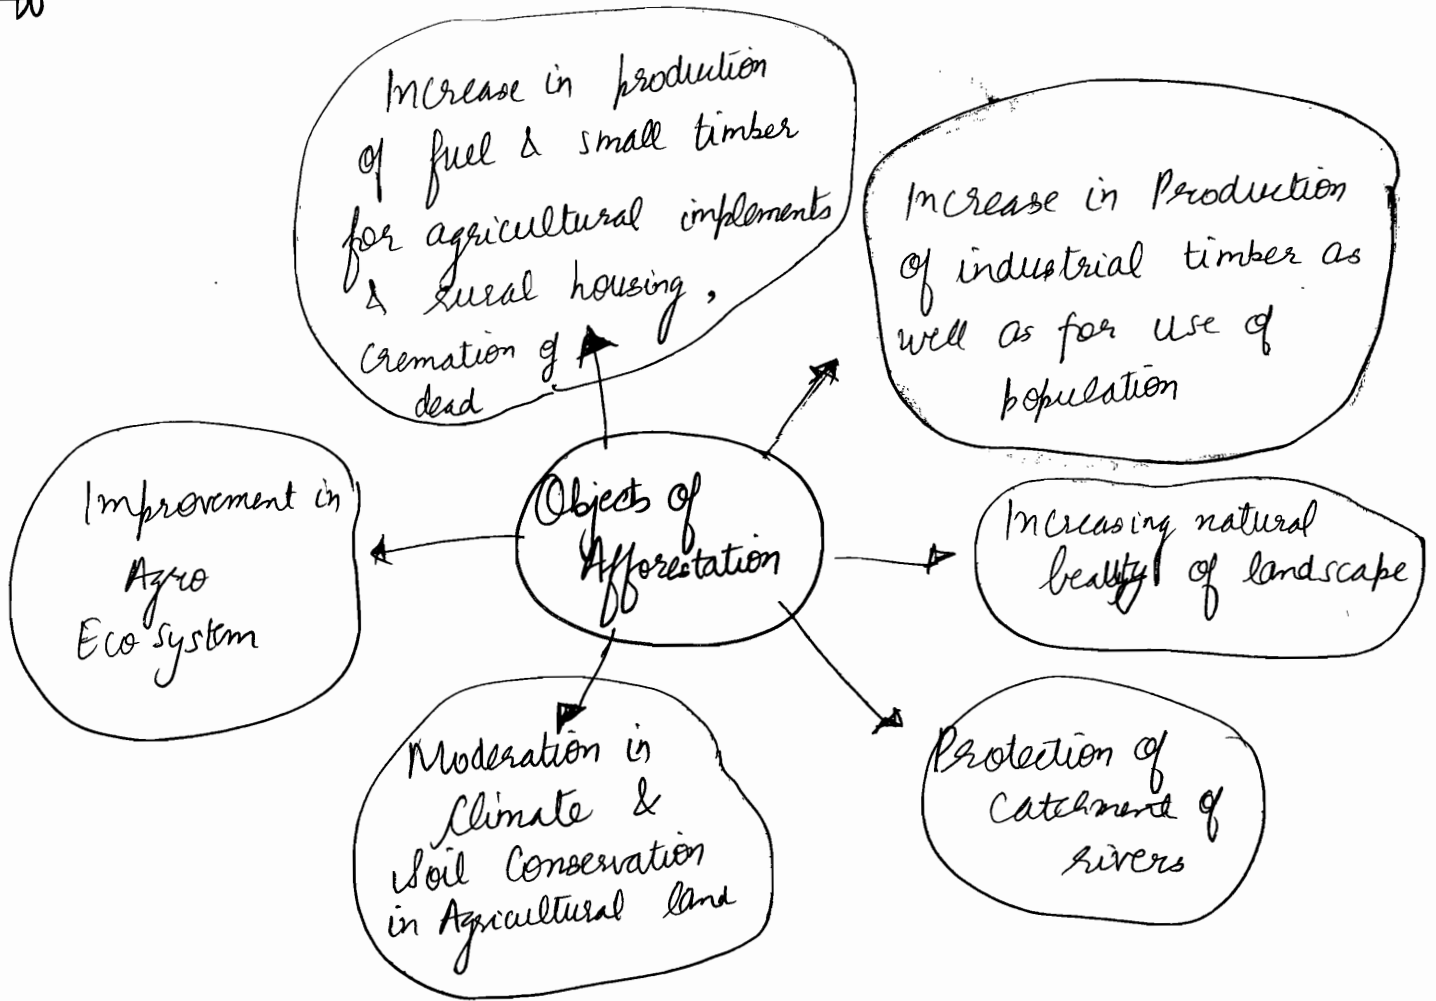 Increase in production
of fuel & small timber
for agricultural implements
& rural housing,
cremation of
dead
Increase in Production
of industrial timber as
well as for use of
population
Objects of
Afforestation
Improvement in
Agro
Eco system
Increasing natural
beauty of landscape
Moderation in
Climate &
Soil Conservation
in Agricultural land
Protection of
Catchment of
rivers